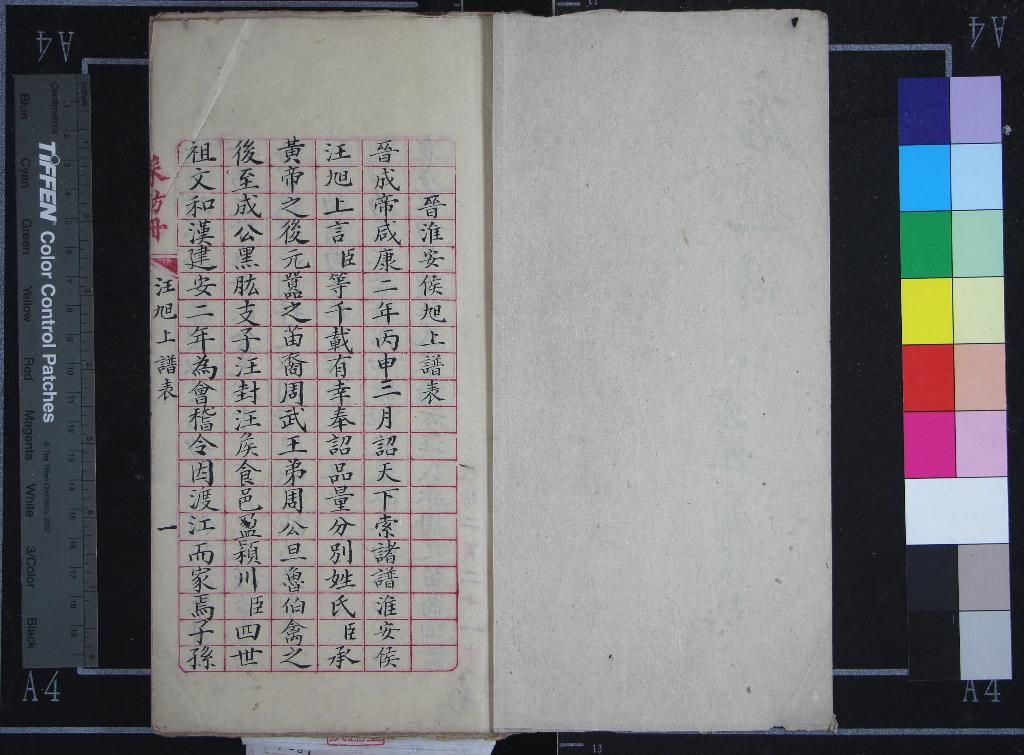 晉淮安侯旭上譜表
晉成帝咸康二年丙申三月詔天下索諸譜淮安侯
汪旭上言臣等千載有幸奉詔品量分別姓氏臣承
黃帝之後元囂之苗裔周武王弟周公旦魯伯禽之
後至成公黑肱支子汪封汪侯食邑盈潁川臣四世
祖文和漢建安二年為會稽令因渡江而家焉子孫
采訪冊
汪旭上譜表
一
A4
A4
A4
A4
TIFFEN Color Control Patches
© The Tiffen Company, 2007
Centimetres
Inches
Blue
Cyan
Green
Yellow
Red
Magenta
White
3/Color
Black
13